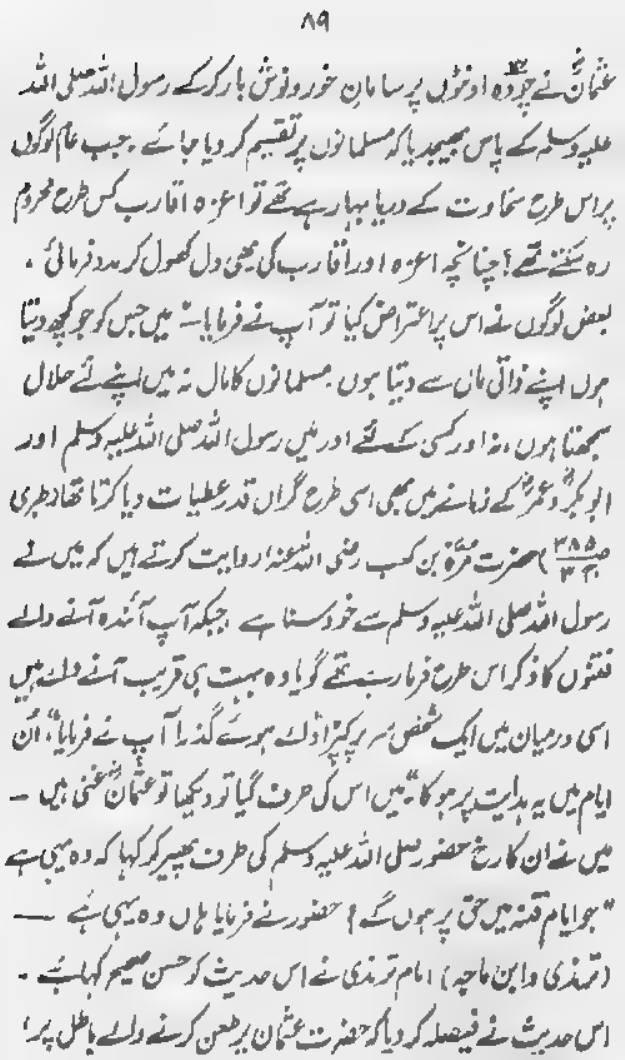 ۸۹
عثمانؓ نے چودہ ۱۴ اونٹوں پر سامان خورونوش بار کرکے رسول اللہ صلی اللہ
علیہ وسلم کے پاس بھیجدیا کہ مسلمانوں پر تقسیم کر دیا جائے ۔ جب عام لوگوں
پر اس طرح سخاوت کے دریا بہا رہے تھے تو اعزہ اقارب کس طرح محروم
رہ سکتے تھے؟ چنانچہ اعزہ اور اقارب کی بھی دل کھول کر مدد فرمائی ۔
بعض لوگوں نے اس پر اعتراض کیا تو آپ نے فرمایا۔" میں جس کو جو کچھ دیتا
ہوں اپنے ذاتی مال سے دیتا ہوں ۔ مسلمانوں کا مال نہ میں اپنے لئے حلال
سمجھتا ہوں ، نہ اور کسی کے لئے اور میں رسول اللہ صلی اللہ علیہ وسلم اور
ابوبکرؓ و عمرؓ کے زمانے میں بھی اسی طرح گراں قدر عطیات دیا کرتا تھا (طبری
ص ۳۸۵) حضرت مرّۃ بن کعب رضی اللہ عنہ روایت کرتے ہیں کہ میں نے
رسول اللہ صلی اللہ علیہ وسلم سے خود سنا ہے ، جبکہ آپ آئندہ آنے والے
فتنوں کا ذکر اس طرح فرما رہے تھے گویا وہ بہت ہی قریب آنے والے ہیں
اسی درمیان میں ایک شخص سر پر کپڑا ڈالے ہوئے گذرا آپ نے فرمایا "، اُن
ایام میں یہ ہدایت پر ہوگا" میں اس کی طرف گیا تو دیکھا تو عثمانؓ غنی ہیں ۔
میں نے ان کا رخ حضور صلی اللہ علیہ وسلم کی طرف پھیر کر کہا کہ وہ یہی ہے
"جو ایام فتنہ میں حق پر ہوں گے؟ حضور نے فرمایا ہاں وہ یہی ہے ۔
(ترمذی و ابن ماجہ) امام ترمذی نے اس حدیث کو حسن صحیح کہا ہے ۔
اس حدیث نے فیصلہ کر دیا کہ حضرت عثمان پر طعن کرنے والے باطل پر؛